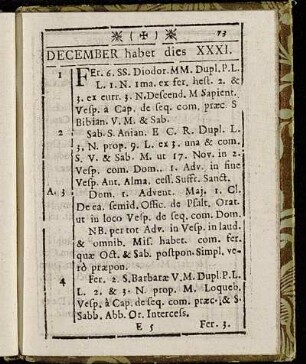 ( ✠ ) 73
DECEMBER habet dies XXXI.
1 FEr. 6. SS. Diodor. MM. Dupl. P. L.
L. 1. N. 1ma. ex fer. hest. 2. &
3. ex curr. 3. N. Descend. M Sapient.
Vesp. à Cap. de seq. com. præc. S
Bibian. V. M. & Sab.
2 Sab. S. Anian. E C R. Dupl. L.
3. N. prop. 9. L. ex 3. una & com.
S. V. & Sab. M. ut 17. Nov. in 2.
Vesp. com. Dom. 1. Adv. in fine
Vesp. Ant. Alma. cess. Suffr. Sanct.
A. 3 Dom. 1. Advent. Maj. 1. Cl.
De ea. semid. Offic. de Psalt. Orat.
ut in loco Vesp. de seq. com. Dom.
NB. per tot Adv. in Vesp. in laud.
& omnib. Mis. habet. com. fer.
quæ Oct. & Sab. postpon. Simpl. ve-
rò præpon.
4 Fer. 2. S. Barbaræ V. M. Dupl. P. L.
L. 2. & 3. N. prop. M. Loqueb.
Vesp. à Cap. de seq. com. præc. & S.
Sabb. Abb. Or. Intercess.
E 5 Fer. 3.